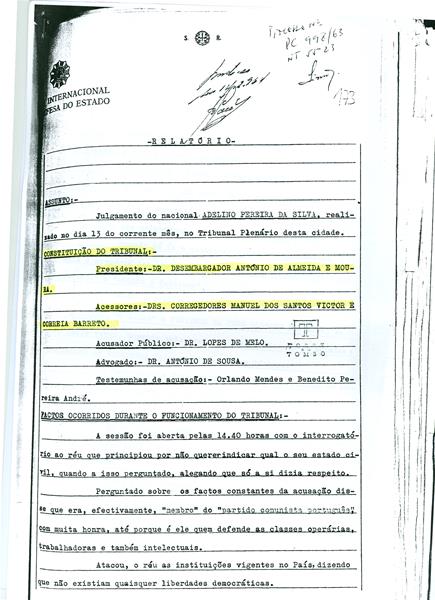 S. R.
PC 992/63
NT 5523
173
INTERNACIONAL
ESA DO ESTADO
-RELATÓRIO-
ASSUNTO:-
Julgamento do nacional ADELINO PEREIRA DA SILVA, reali-
zado no dia 13 do corrente mês, no Tribunal Plenário desta cidade.
CONSTITUIÇÃO DO TRIBUNAL:-
Presidente:-DR. DESEMBARGADOR ANTÓNIO DE ALMEIDA E MOU-
RA.
Acessores:-DRS. CORREGEDORES MANUEL DOS SANTOS VICTOR E
CORREIA BARRETO.
Acusador Público:- DR. LOPES DE MELO.
TORRE
TOMBO
Advogado:- DR. ANTÓNIO DE SOUSA.
Testemunhas de acusação:- Orlando Mendes e Benedito Pe-
reira André.
FACTOS OCORRIDOS DURANTE O FUNCIONAMENTO DO TRIBUNAL:-
A sessão foi aberta pelas 14.40 horas com o interrogató-
rio ao réu que principiou por não quererindicar qual o seu estado ci-
vil, quando a isso perguntado, alegando que só a si dizia respeito.
Perguntado sobre os factos constantes da acusação dis-
se que era, efectivamente, "membro" do "partido comunista português"
com muita honra, até porque é ele quem defende as classes operárias,
trabalhadoras e também intelectuais.
Atacou, o réu as instituições vigentes no País, dizendo
que não existiam quaisquer liberdades democráticas.